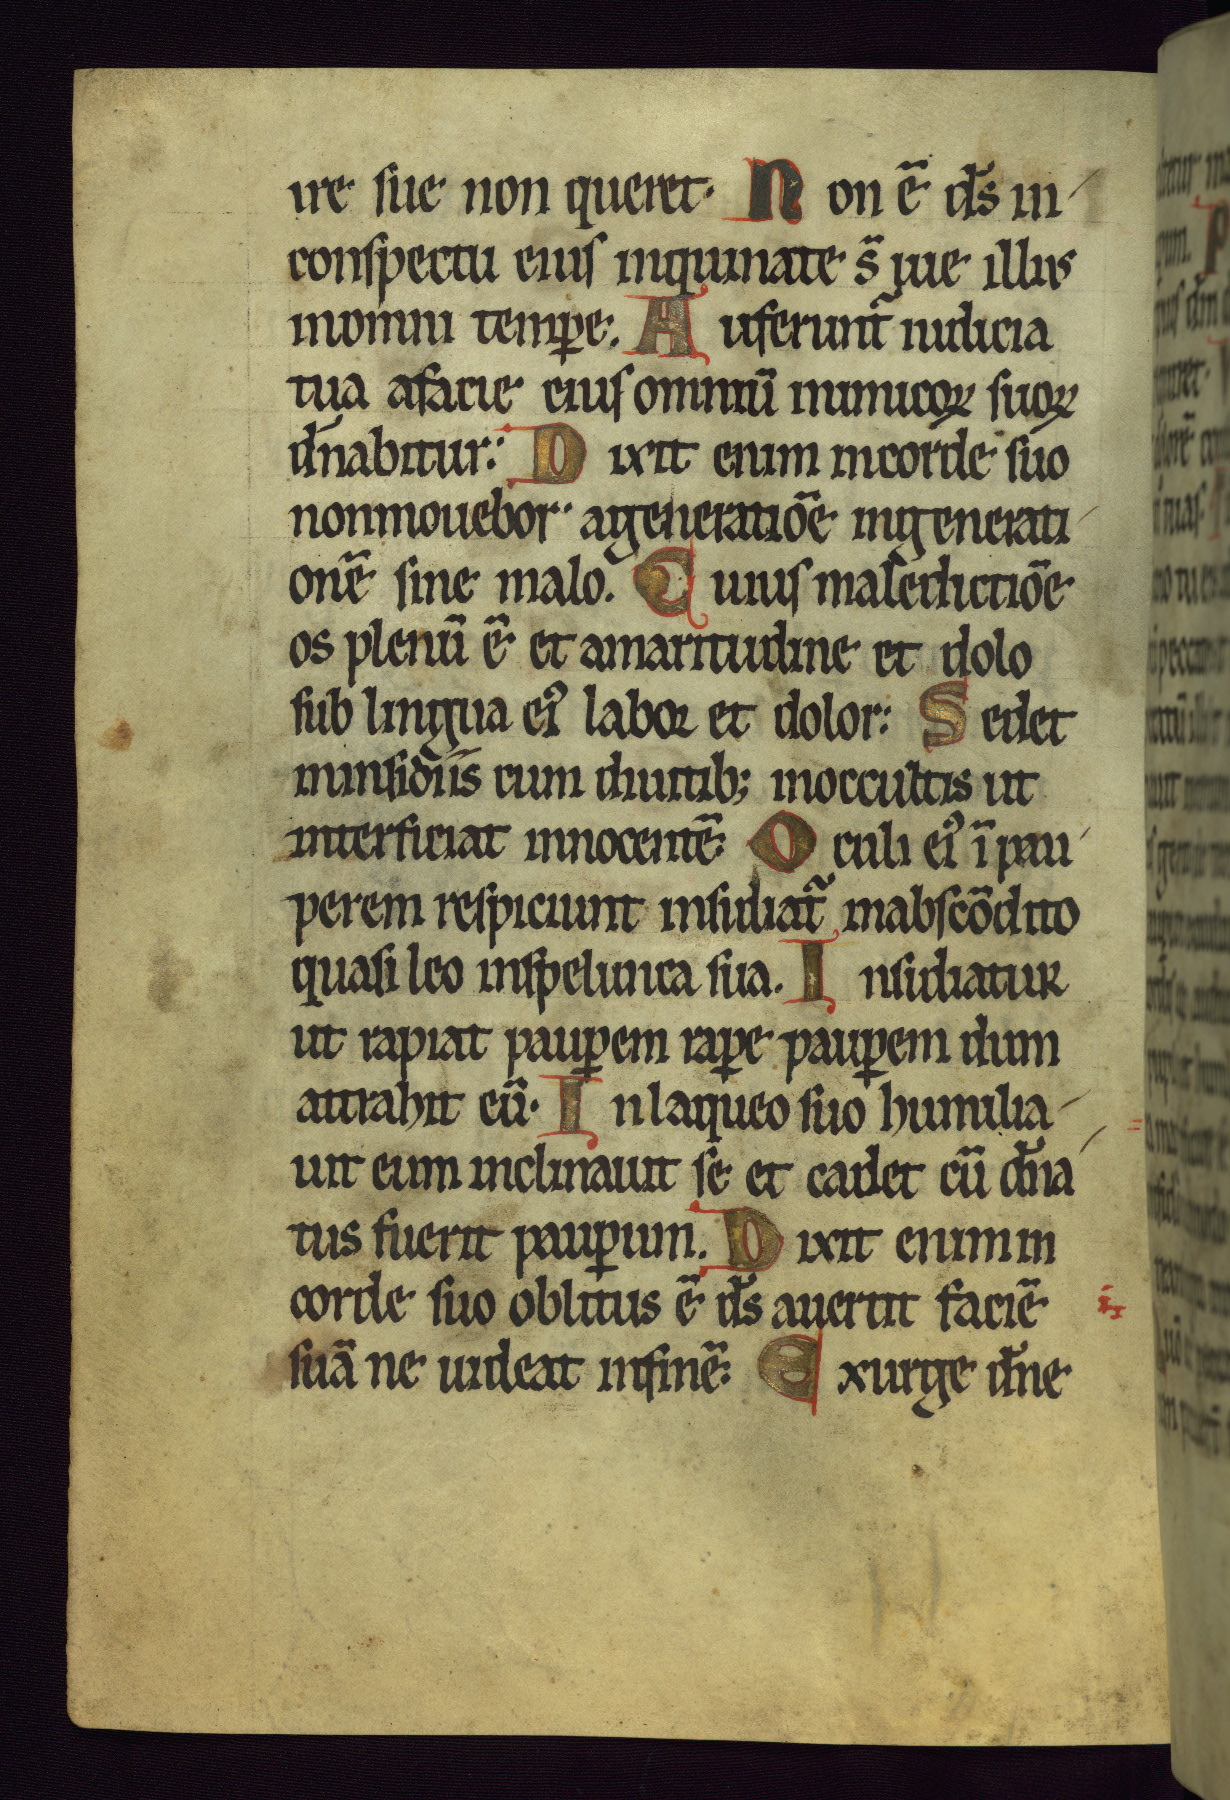 ire sue non queret. Non ē d̄s in
conspectu eius inquinate s̄ uie illius
inomni temꝑe. Auferunt̄ iudicia
tua afacie eius omniū inimicoꝝ suoꝝ
dn̄abitur: Dixit enim incorde suo
nonmouebor ageneratiōe ingenerati
onē sine malo. Cuius maledictiōe
os plenū ē et amaritudine et dolo
sub lingua eiꝰ labor et dolor: Sedet
ininsidiis cum diuitib; inoccultis ut
interficiat innocentē: Oculi eiꝰ ī pau
perem respiciunt insidiat̄ inabscōdito
quasi leo inspelunca sua. Insidiatur
ut rapiat pauꝑem raꝑe pauꝑem dum
attrahit eū. In laqueo suo humilia
uit eum inclinauit se et cadet cū dn̄a
tus fuerit pauꝑum. Dixit enim in
corde suo oblitus ē d̄s auertit faciē
suā ne uideat infinē: Exurge dn̄e